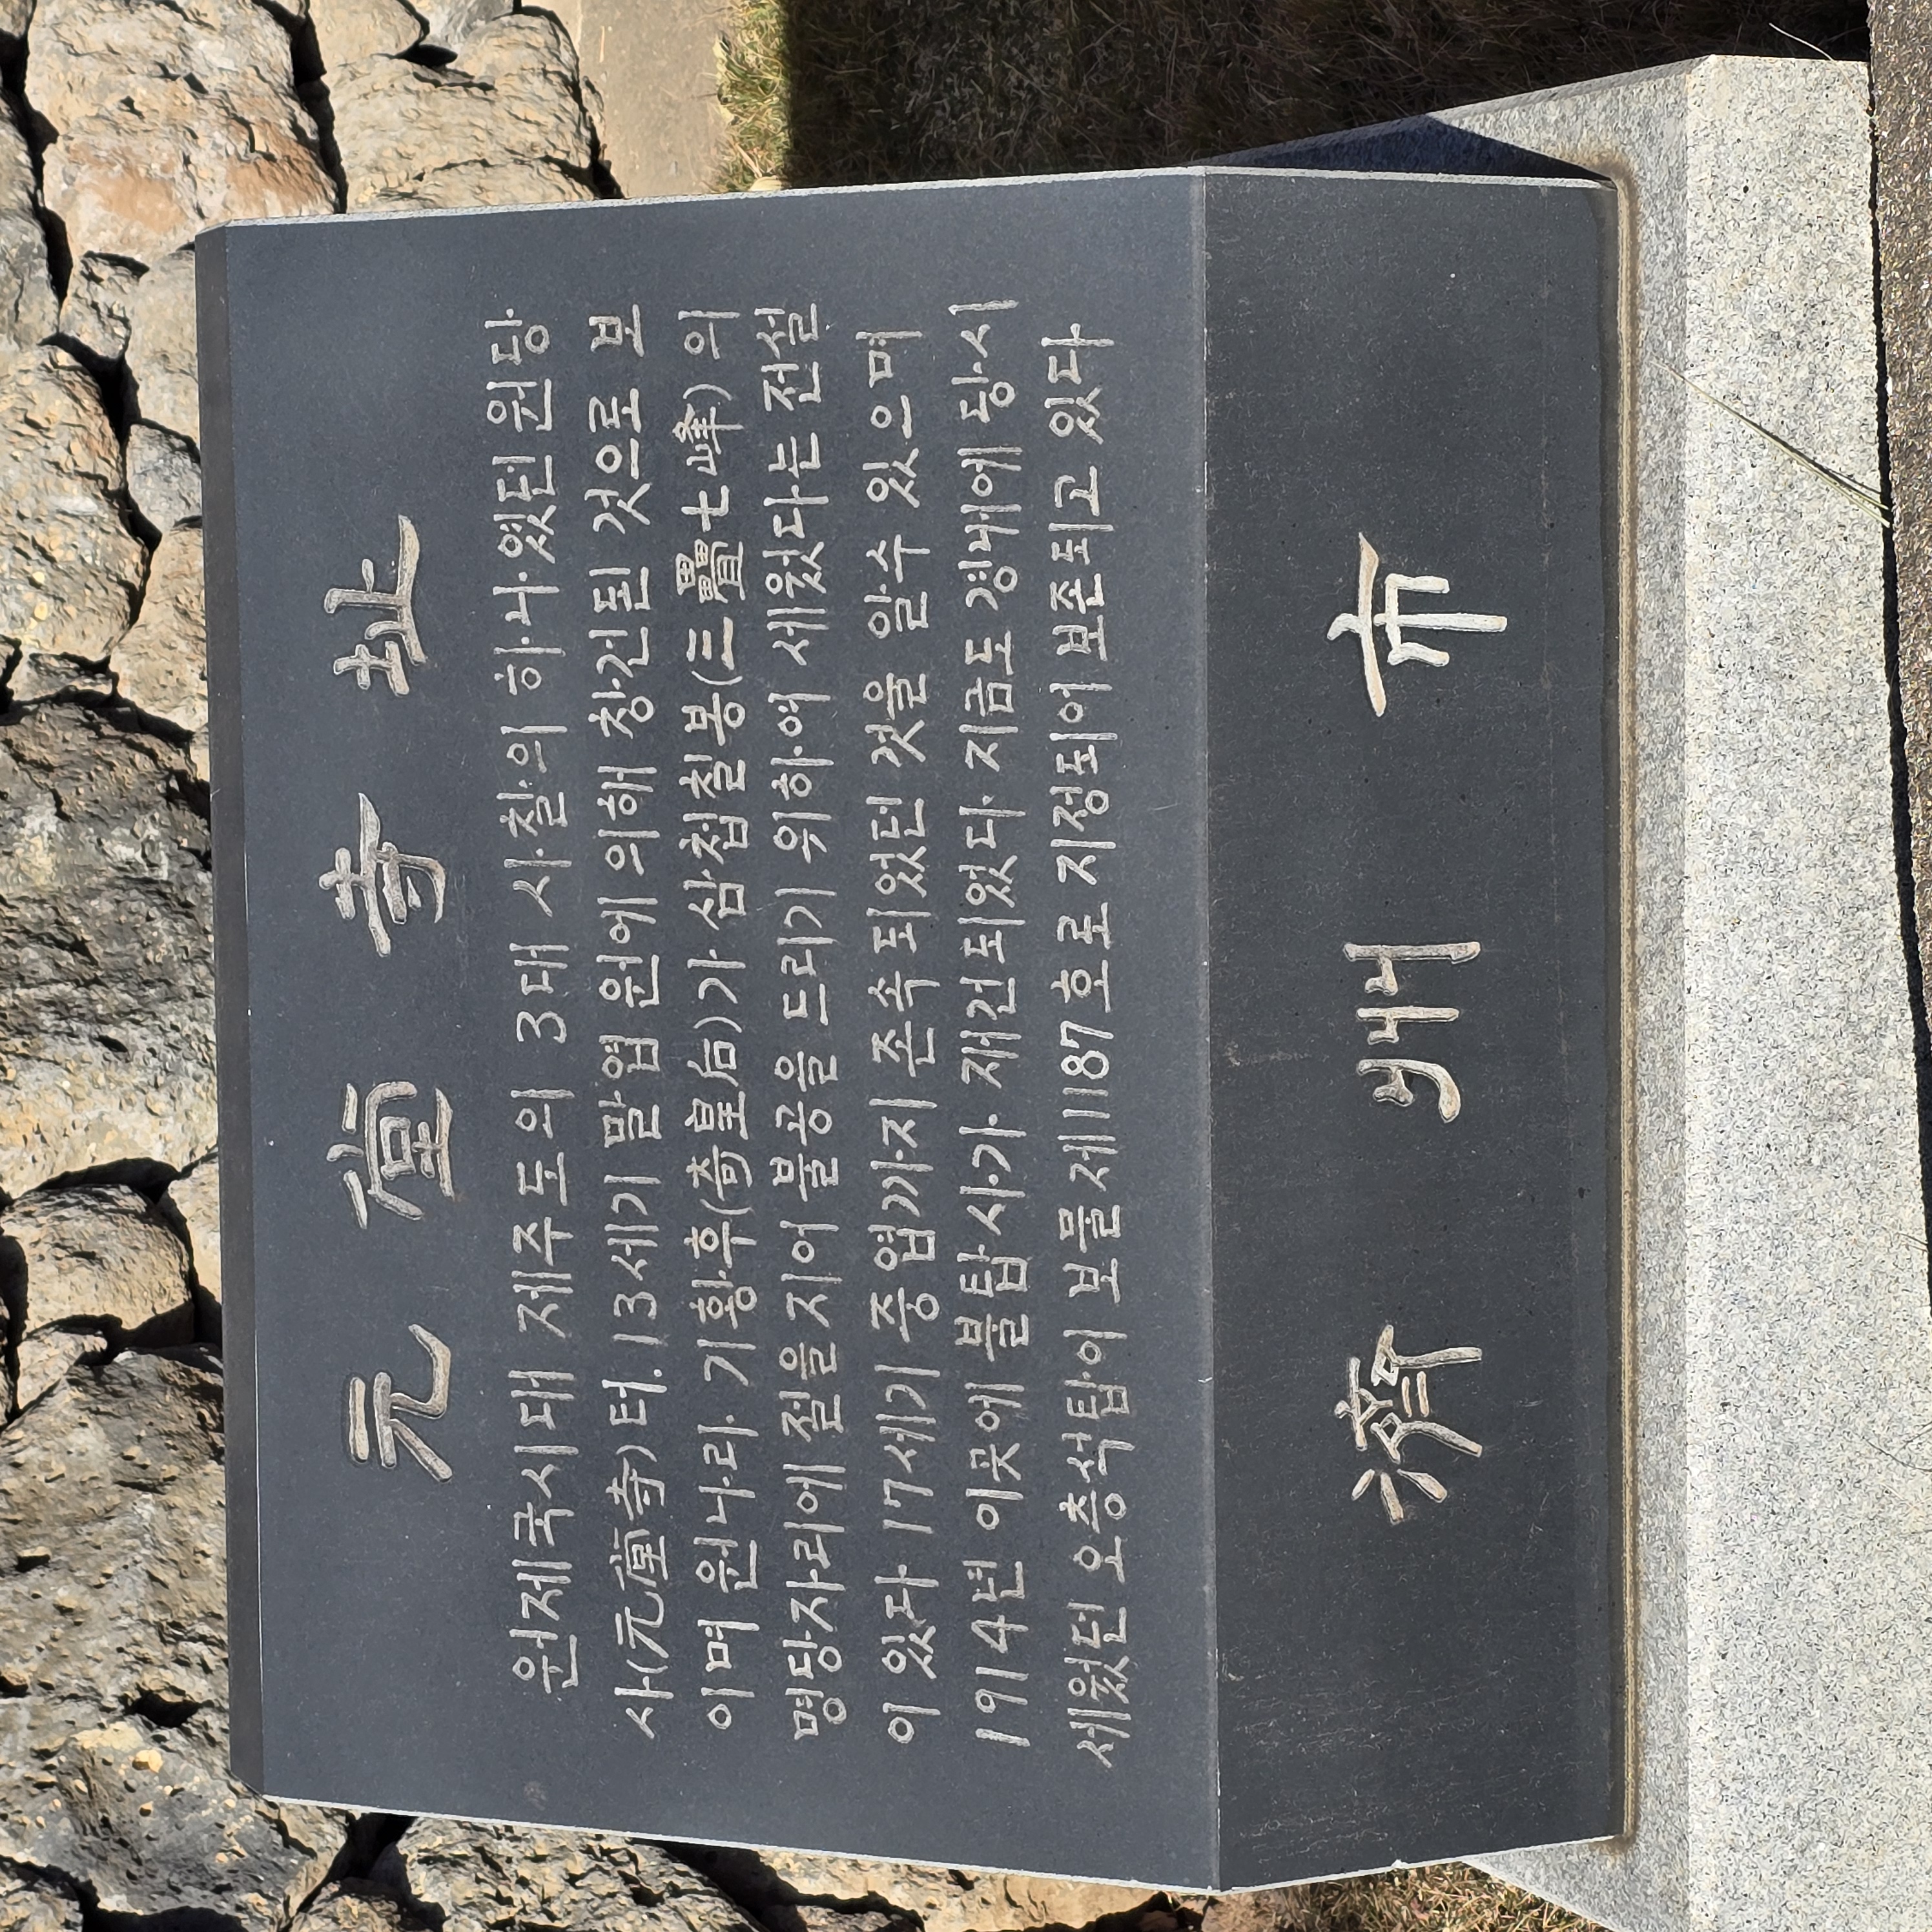 元堂寺址
원제국시대 제주도의 3대 사찰의 하나였던 원당
사(元堂寺)터. 13세기 말엽 원에 의해 창건된 것으로 보
이며 원나라 기황후(奇皇后)가 삼첩칠봉(三疊七峰)의
명당자리에 절을 지어 불공을 드리기 위하여 세웠다는 전설
이 있다 17세기 중엽까지 존속되었던 것을 알수 있으며
1914년 이곳에 불탑사가 재건되었다 지금도 경내에 당시
세웠던 오층석탑이 보물 제1187호로 지정되어 보존되고 있다
濟州市